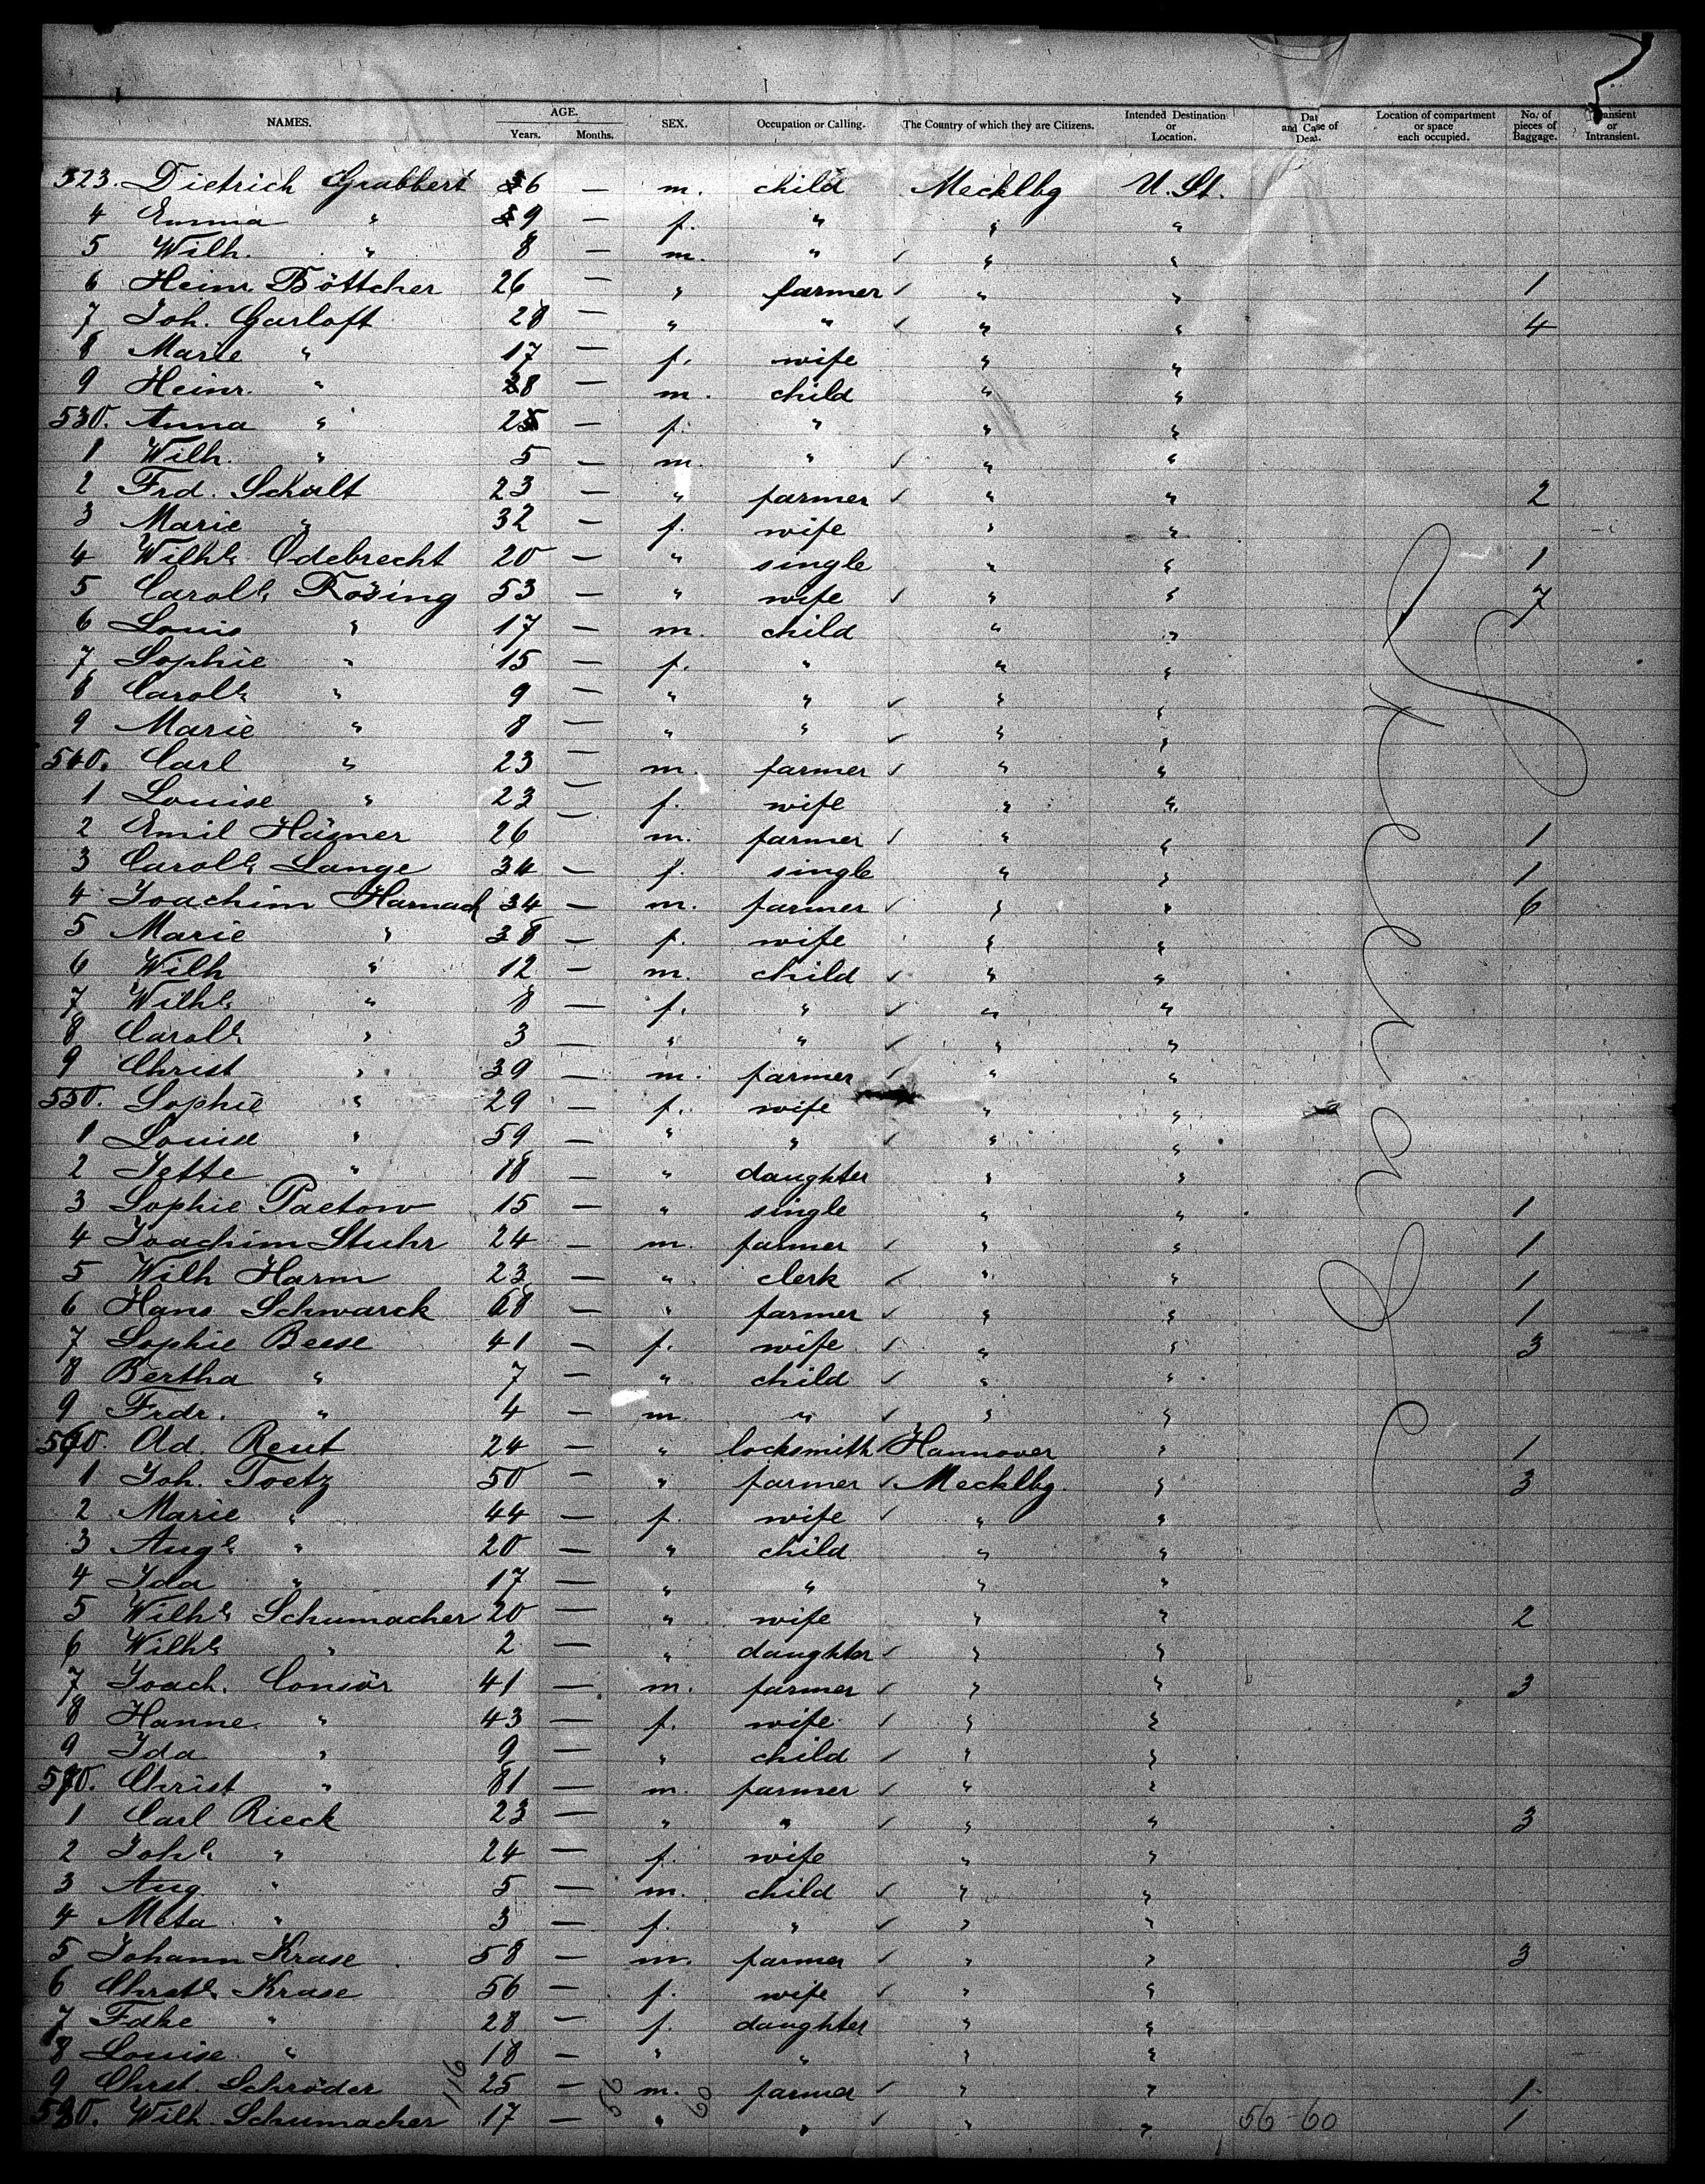 NAMES. AGE. Years. Months. SEX. Occupation or Calling. The Country of which they are Citizens. Intended Destination or Location. Dat and Cause of Deat. Location of compartment or space each occupied. No. of pieces of Baggage. ransient or Intransient.
523. Dietrich Grabbert 6 — m. child Mecklbg U. St.
4 Emma " 9 — f. " " "
5 Wilh. " 8 — m. " ✓ " "
6 Heinr Böttcher 26 — " farmer ✓ " " 1
7 Joh. Garloft 28 — " " ✓ " " 4
8 Marie " 17 — f. wife " "
9 Heinr. " 8 — m. child " "
530. Anna " 2 — f. " " "
1 Wilh. " 5 — m. " ✓ " "
2 Frd. Schult 23 — " farmer ✓ " " 2
3 Marie " 32 — f. wife " "
4 Wilhe. Odebrecht 20 — " single " " 1
5 Carole. Rösing 53 — " wife ✓ " " 7
6 Louis " 17 — m. child " "
7 Sophie " 15 — f. " " "
8 Carole. " 9 — " " ✓ " "
9 Marie " 8 — " " ✓ " "
540. Carl " 23 — m. farmer ✓ " "
1 Louise " 23 — f. wife " "
2 Emil Häsner 26 m. farmer ✓ " " 1
3 Carole. Lange 34 — f. single " " 1
4 Joachim Harnack 34 — m. farmer ✓ " " 6
5 Marie " 38 — f. wife " "
6 Wilh " 12 — m. child ✓ " "
7 Wilhe. " 8 — f. " ✓ " "
8 Carole. " 3 — " " ✓ " "
9 Christ " 39 — m. farmer ✓ " "
550. Sophie " 29 — f. wife " "
1 Louise " 59 — " " ✓ " "
2 Jette " 18 — " daughter " "
3 Sophie Paetow 15 — " single " " 1
4 Joachim Stuhr 24 — m. farmer ✓ " " 1
5 Wilh Harm 23 — " clerk ✓ " " 1
6 Hans Schwarck 68 — " farmer ✓ " " 1
7 Sophie Beese 41 — f. wife ✓ " " 3
8 Bertha " 7 — " child ✓ " "
9 Frdr. " 4 — m. " ✓ " "
560. Ad. Reut 24 — " locksmith Hannover " 1
1 Joh. Toetz 50 — " farmer ✓ Mecklbg. " 3
2 Marie " 44 — f. wife ✓ " "
3 Auge. " 20 — " child " "
4 Ida " 17 — " " " "
5 Wilhe. Schumacher 20 — " wife " " 2
6 Wilhe. " 2 — " daughter ✓ " "
7 Joach. Consör 41 — m. farmer ✓ " " 3
8 Hanne. " 43 — f. wife ✓ " "
9 Ida " 9 — " child ✓ " "
570. Christ " 81 — m. farmer ✓ " "
1 Carl Rieck 23 — " " ✓ " " 3
2 Johe. " 24 — f. wife " "
3 Aug. " 5 — m. child ✓ " "
4 Meta " 3 — f. " ✓ " "
5 Johann Krase 58 — m. farmer ✓ " " 3
6 Christe. Krase 56 — f. wife ✓ " "
7 Fdke " 28 — f. daughter " "
8 Louise " 18 — " " " "
9 Chrst. Schröder 25 — m. farmer ✓ " " 1
580. Wilh. Schumacher 17 — " " ✓ " " 1
56-60